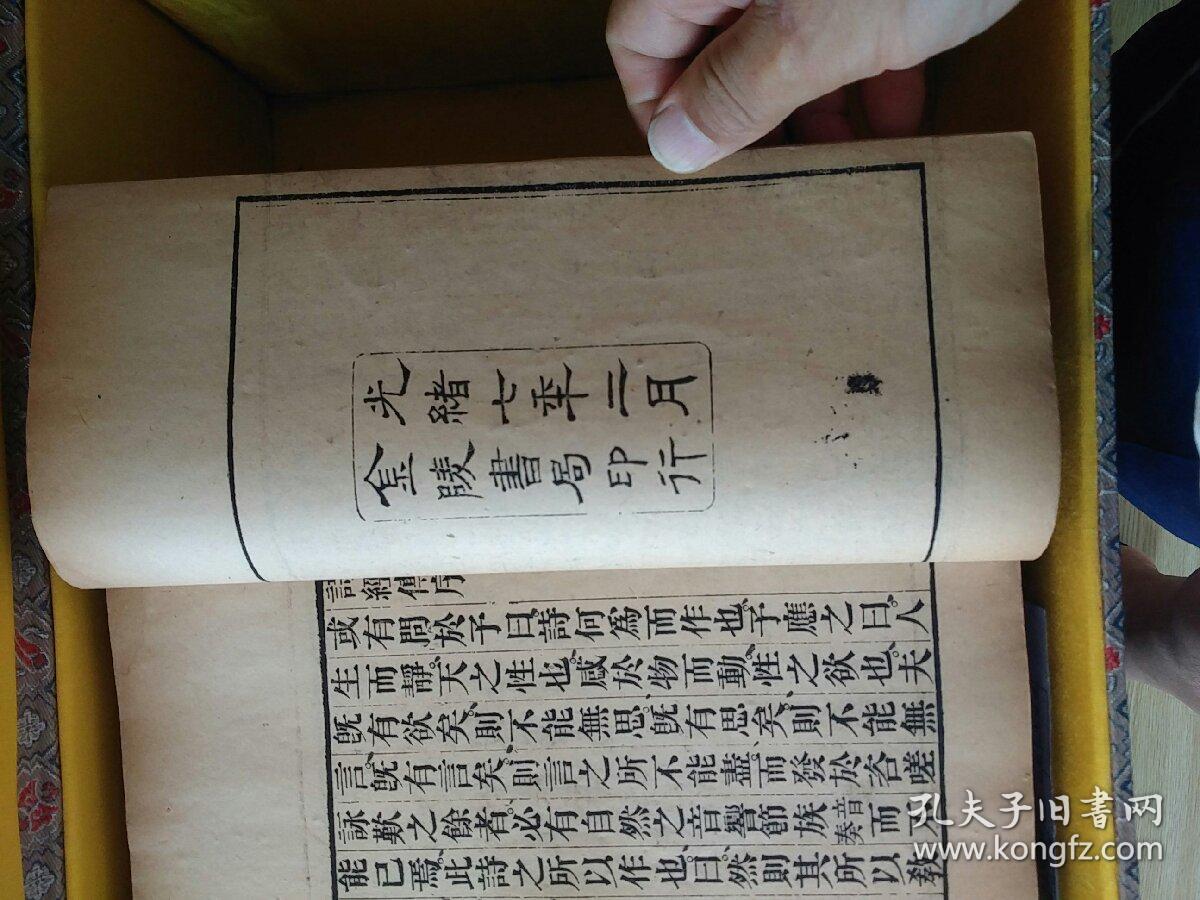 光緒七年二月
金陵書局印行
詩經傳序
或有問於予曰。詩何爲而作也。予應之曰。人
生而靜。天之性也。感於物而動。性之欲也。夫
旣有欲矣。則不能無思。旣有思矣。則不能無
言。旣有言矣。則言之所不能盡。而發於咨嗟
詠歎之餘者。必有自然之音響節族音奏而不
能已焉。此詩之所以作也。曰。然則其所以敎
孔夫子旧書网
www.kongfz.com